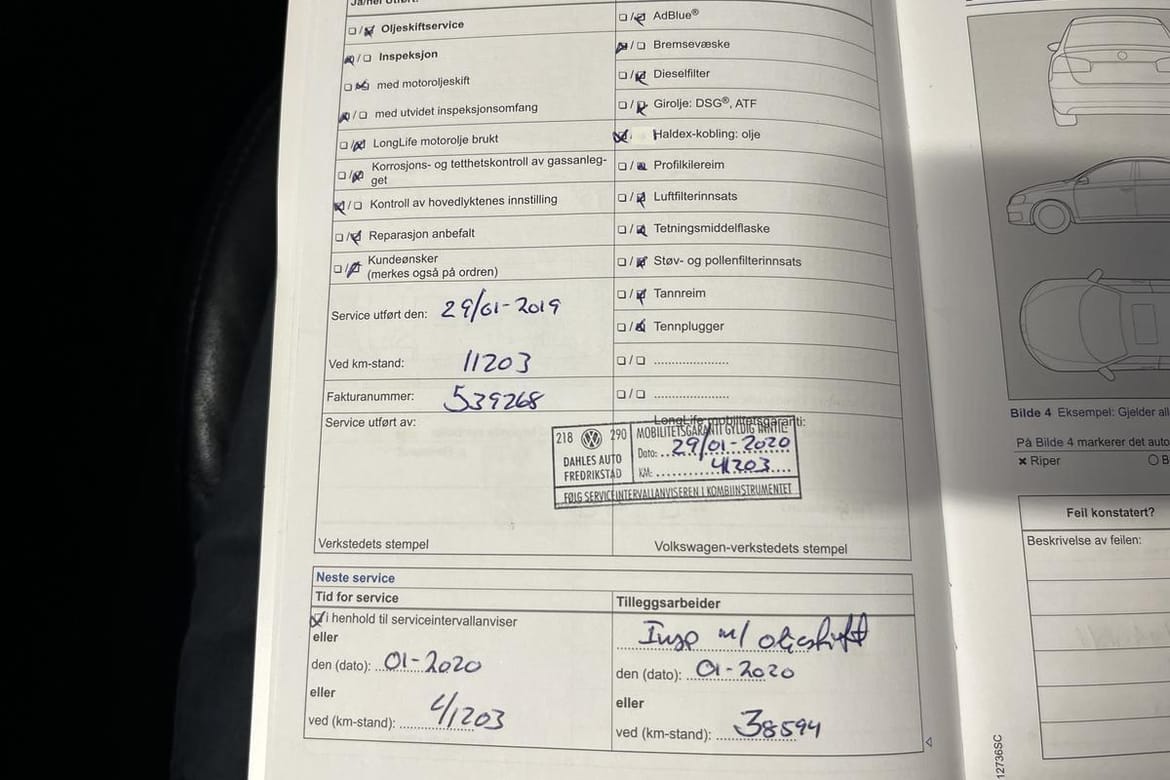 Oljeskiftservice
Inspeksjon
med motoroljeskift
med utvidet inspeksjonsomfang
LongLife motorolje brukt
Korrosjons- og tetthetskontroll av gassanleg-
get
Kontroll av hovedlyktenes innstilling
Reparasjon anbefalt
Kundeønsker
(merkes også på ordren)
Service utført den: 29/01-2019
Ved km-stand: 11203
Fakturanummer: 539268
Service utført av:
Verkstedets stempel
AdBlue®
Bremsevæske
Dieselfilter
Girolje: DSG®, ATF
Haldex-kobling: olje
Profilkilereim
Luftfilterinnsats
Tetningsmiddelflaske
Støv- og pollenfilterinnsats
Tannreim
Tennplugger
LongLife-mobilitetsgaranti:
218 290
DAHLES AUTO
FREDRIKSTAD
MOBILITETSGARANTI GYLDIG INNTIL
Dato: 29/01-2020
KM: 41203
FØLG SERVICEINTERVALLANVISEREN I KOMBIINSTRUMENTET
Volkswagen-verkstedets stempel
Neste service
Tid for service
i henhold til serviceintervallanviser
eller
den (dato): 01-2020
eller
ved (km-stand): 41203
Tilleggsarbeider
Insp m/ oljeskift
den (dato): 01-2020
eller
ved (km-stand): 38594
12736SC
Bilde 4 Eksempel: Gjelder all
På Bilde 4 markerer det auto
Riper
Feil konstatert?
Beskrivelse av feilen: